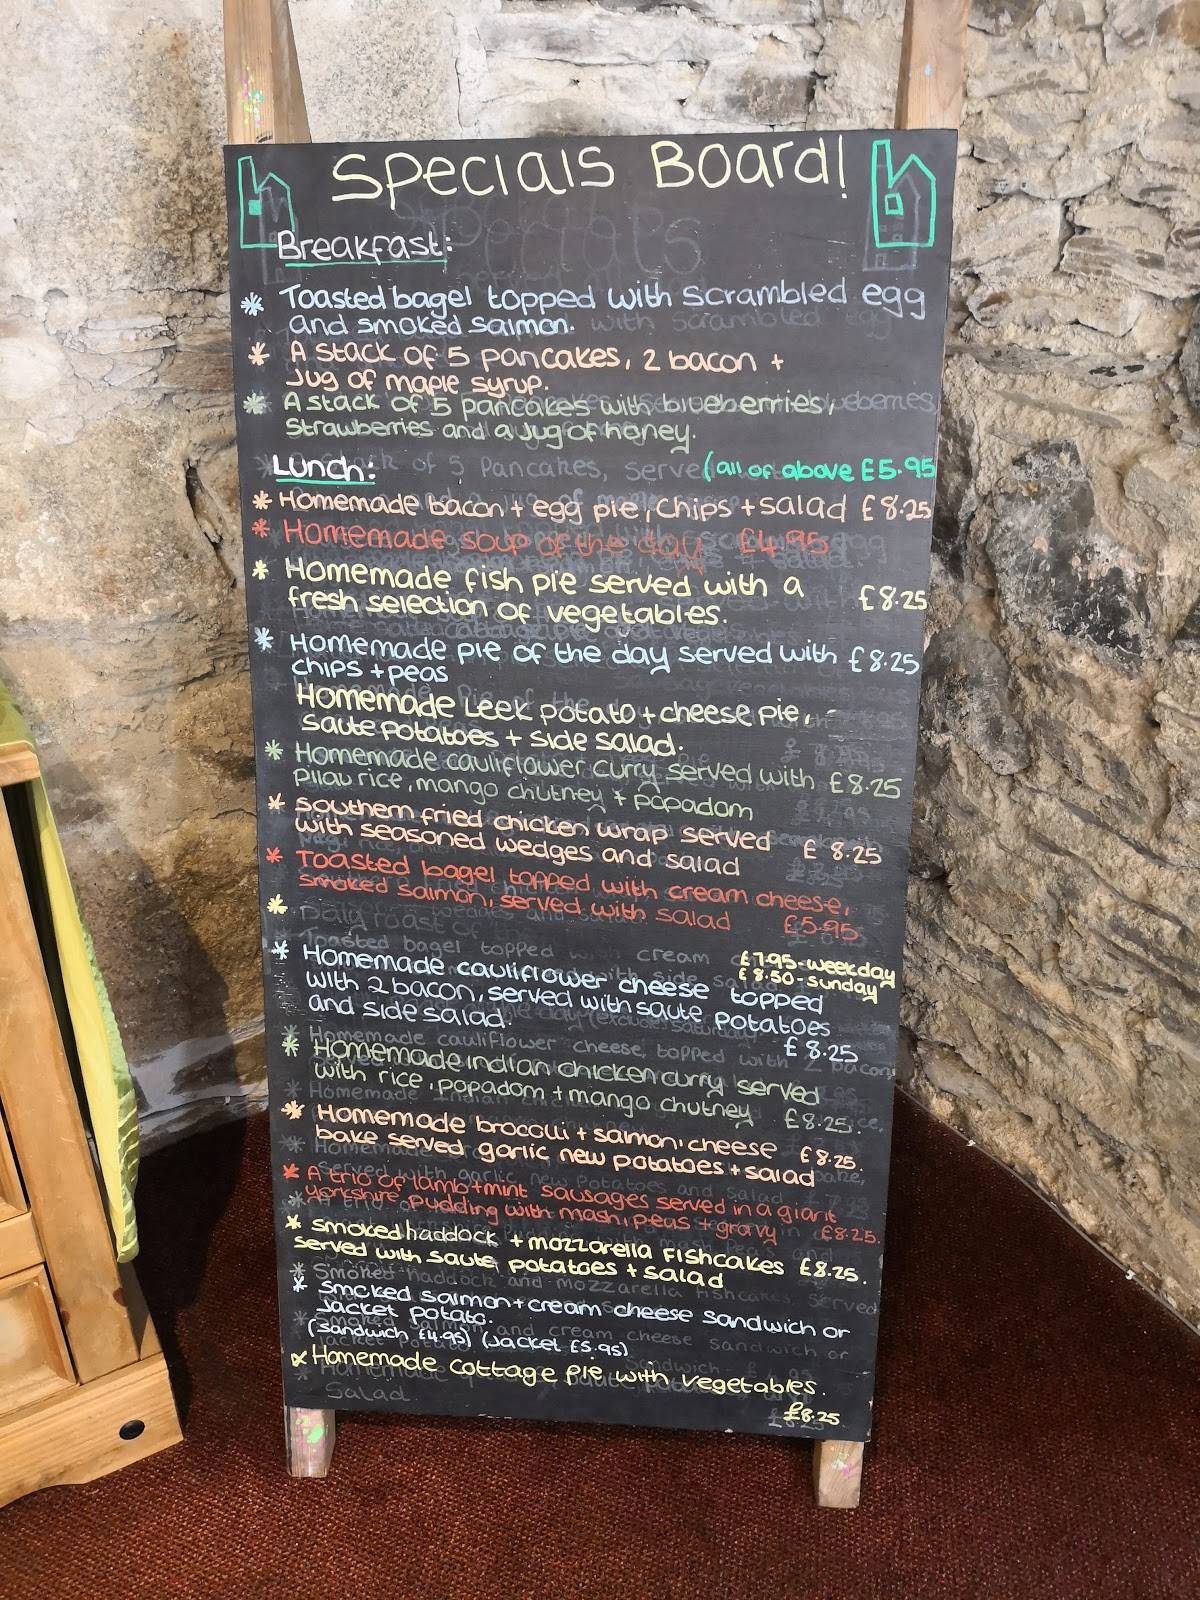 Specials Board!
Breakfast:
* Toasted bagel topped with scrambled egg
and smoked salmon.
* A stack of 5 pancakes, 2 bacon +
Jug of maple syrup.
* A stack of 5 pancakes with blueberries,
Strawberries and a jug of honey.
Lunch:
(all of above £5.95
* Homemade bacon + egg pie, chips + salad £8.25
* Homemade soup of the day £4.95
* Homemade fish pie served with a £8.25
fresh selection of vegetables.
* Homemade pie of the day served with £8.25
chips + peas
Homemade Leek potato + cheese pie,
saute potatoes + side salad.
* Homemade cauliflower curry served with £8.25
pilau rice, mango chutney + popadom
* Southern fried chicken wrap served £8.25
with seasoned wedges and salad
* Toasted bagel topped with cream cheese,
smoked salmon, served with salad £5.95
*
£7.95-weekday
£8.50-sunday
* Homemade cauliflower cheese topped
with 2 bacon, served with saute potatoes
and side salad. £8.25
* Homemade indian chicken curry served
with rice, popadom + mango chutney £8.25.
* Homemade brocolli + salmon, cheese £8.25.
bake served garlic new potatoes + salad
* A trio of lamb + mint sausages served in a giant
yorkshire pudding with mash, peas + gravy £8.25.
* smoked haddock + mozzarella fishcakes £8.25.
served with saute potatoes + salad
* Smoked salmon + cream cheese sandwich or
Jacket potato.
(sandwich £4.95) (Jacket £5.95)
* Homemade cottage pie with vegetables.
£8.25